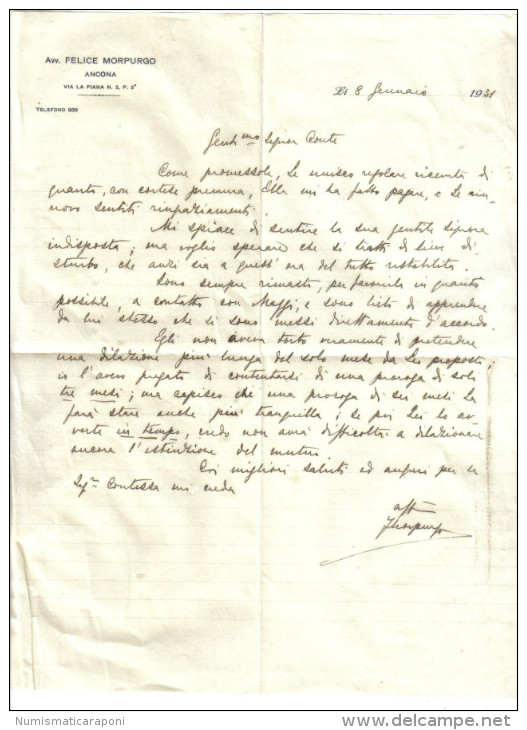 Avv. FELICE MORPURGO
ANCONA
VIA LA PIANA N. 3, P. 2°
TELEFONO 600
Dì 8 Gennaio 1931
Genti.mo Signor Conte
Come promessole, Le unisco regolare ricevuta di
quanto, con cortese premura, Ella mi ha fatto pagare, e Le rin-
novo sentiti ringraziamenti.
Mi spiace di sentire la sua gentile Signora
indisposta; ma voglio sperare che si tratti di lieve di-
sturbo, che anzi sia a quest'ora del tutto ristabilita.
Sono sempre rimasto, per favorirla in quanto
possibile, a contatto con Maffi, e sono lieto di apprendere
da lui stesso che si sono messi direttamente d'accordo.
Egli non aveva torto veramente di pretendere
una dilazione più lunga del solo mese da Lei proposto;
io l'avevo pregato di contentarsi di una proroga di soli
tre mesi; ma capisco che una proroga di sei mesi La
farà stare anche più tranquilla; se poi Lei lo av-
verte in tempo, credo non avrà difficoltà a dilazionare
ancora l'estinzione del mutuo.
Coi migliori saluti ed auguri per la
Sig.ra Contessa mi creda
aff.
FMorpurgo
Numismaticaraponi
delcampe.net